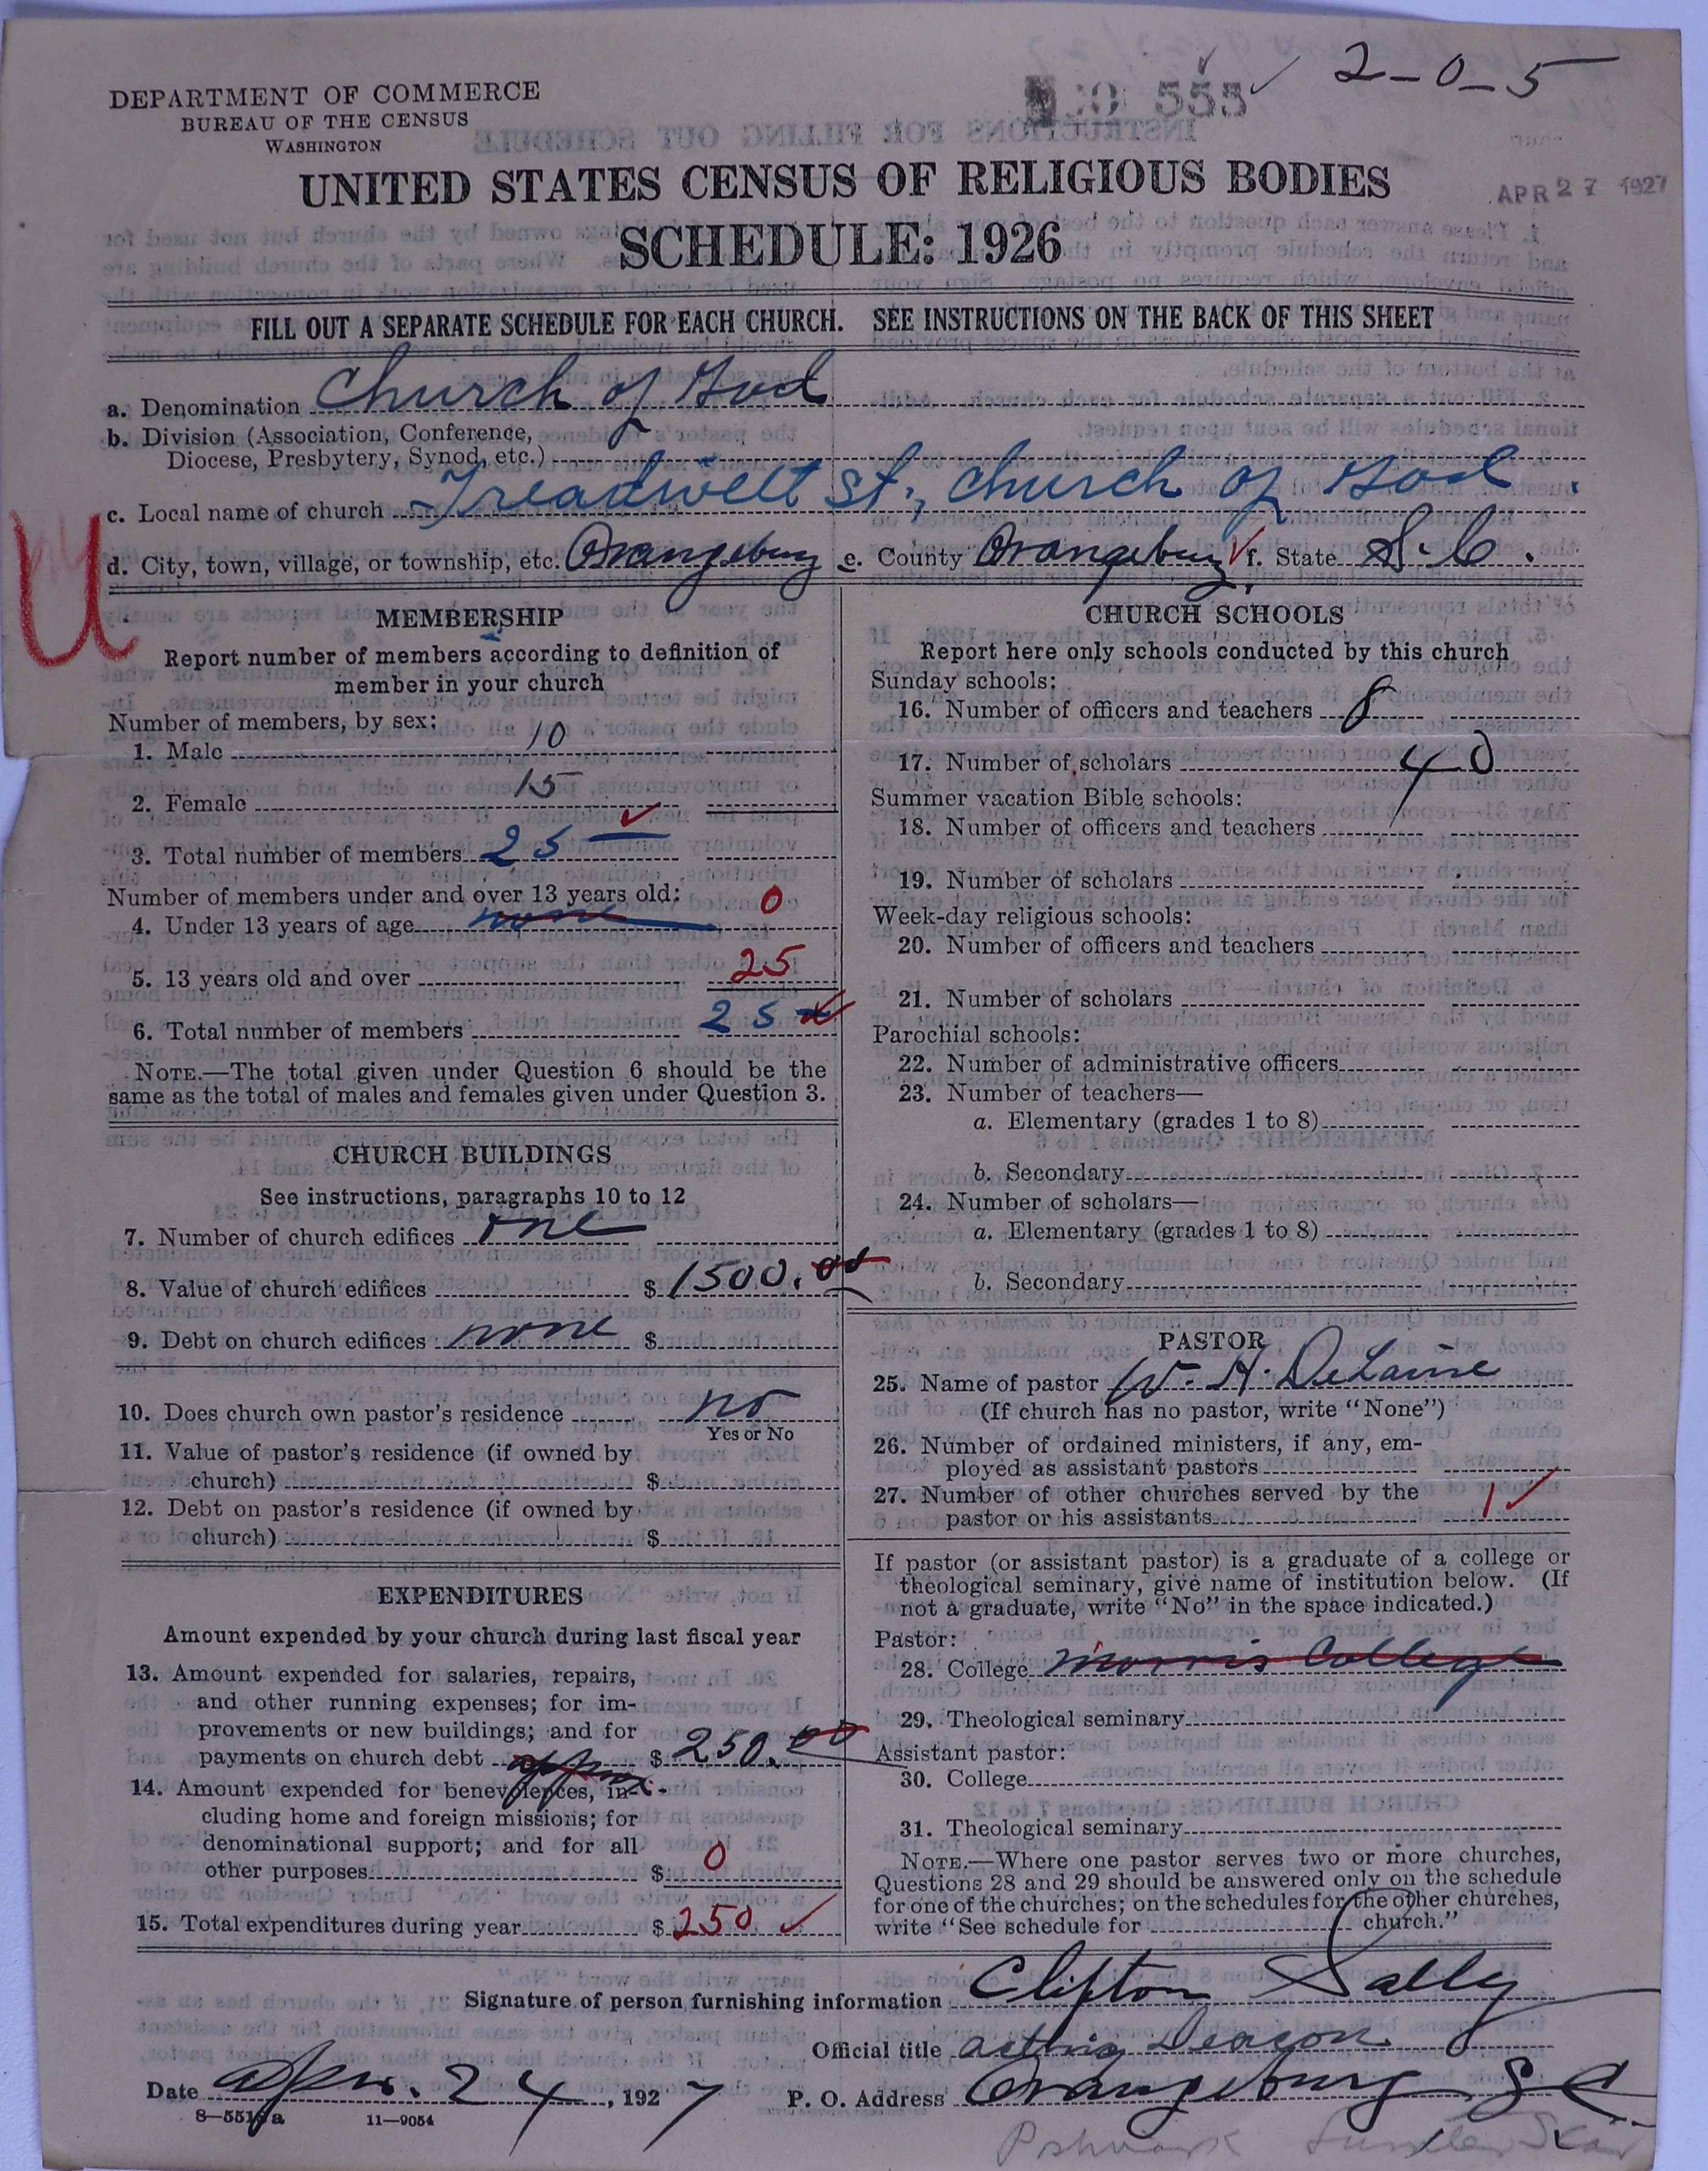 DEPARTMENT OF COMMERCE
BUREAU OF THE CENSUS
WASHINGTON
555
2-0-5
UNITED STATES CENSUS OF RELIGIOUS BODIES
APR 27 1927
SCHEDULE: 1926
FILL OUT A SEPARATE SCHEDULE FOR EACH CHURCH. SEE INSTRUCTIONS ON THE BACK OF THIS SHEET
a. Denomination Church of God
b. Division (Association, Conference,
Diocese, Presbytery, Synod, etc.)
c. Local name of church Treadwell St., Church of God.
d. City, town, village, or township, etc. Orangeburg e. County Orangeburg f. State S.C.
U
MEMBERSHIP
Report number of members according to definition of
member in your church
Number of members, by sex:
1. Male 10
2. Female 15
3. Total number of members 25
Number of members under and over 13 years old:
4. Under 13 years of age none 0
5. 13 years old and over 25
6. Total number of members 25
NOTE.—The total given under Question 6 should be the
same as the total of males and females given under Question 3.
CHURCH BUILDINGS
See instructions, paragraphs 10 to 12
7. Number of church edifices one
8. Value of church edifices $ 1500.00
9. Debt on church edifices none $
10. Does church own pastor's residence no
Yes or No
11. Value of pastor's residence (if owned by
church) $
12. Debt on pastor's residence (if owned by
church) $
EXPENDITURES
Amount expended by your church during last fiscal year
13. Amount expended for salaries, repairs,
and other running expenses; for im-
provements or new buildings; and for
payments on church debt $ 250.00
14. Amount expended for benevolences, in-
cluding home and foreign missions; for
denominational support; and for all
other purposes $ 0
15. Total expenditures during year $ 250
CHURCH SCHOOLS
Report here only schools conducted by this church
Sunday schools:
16. Number of officers and teachers 8
17. Number of scholars 40
Summer vacation Bible schools:
18. Number of officers and teachers
19. Number of scholars
Week-day religious schools:
20. Number of officers and teachers
21. Number of scholars
Parochial schools:
22. Number of administrative officers
23. Number of teachers—
a. Elementary (grades 1 to 8)
b. Secondary
24. Number of scholars—
a. Elementary (grades 1 to 8)
b. Secondary
PASTOR
25. Name of pastor W. H. DeLaine
(If church has no pastor, write "None")
26. Number of ordained ministers, if any, em-
ployed as assistant pastors
27. Number of other churches served by the
pastor or his assistants 1
If pastor (or assistant pastor) is a graduate of a college or
theological seminary, give name of institution below. (If
not a graduate, write "No" in the space indicated.)
Pastor:
28. College Morris College
29. Theological seminary
Assistant pastor:
30. College
31. Theological seminary
NOTE.—Where one pastor serves two or more churches,
Questions 28 and 29 should be answered only on the schedule
for one of the churches; on the schedules for the other churches,
write "See schedule for church."
Signature of person furnishing information Clifton Sally
Official title acting Deacon
Date Apr. 24, 1927 P. O. Address Orangeburg S C.
8—5518a 11—9054